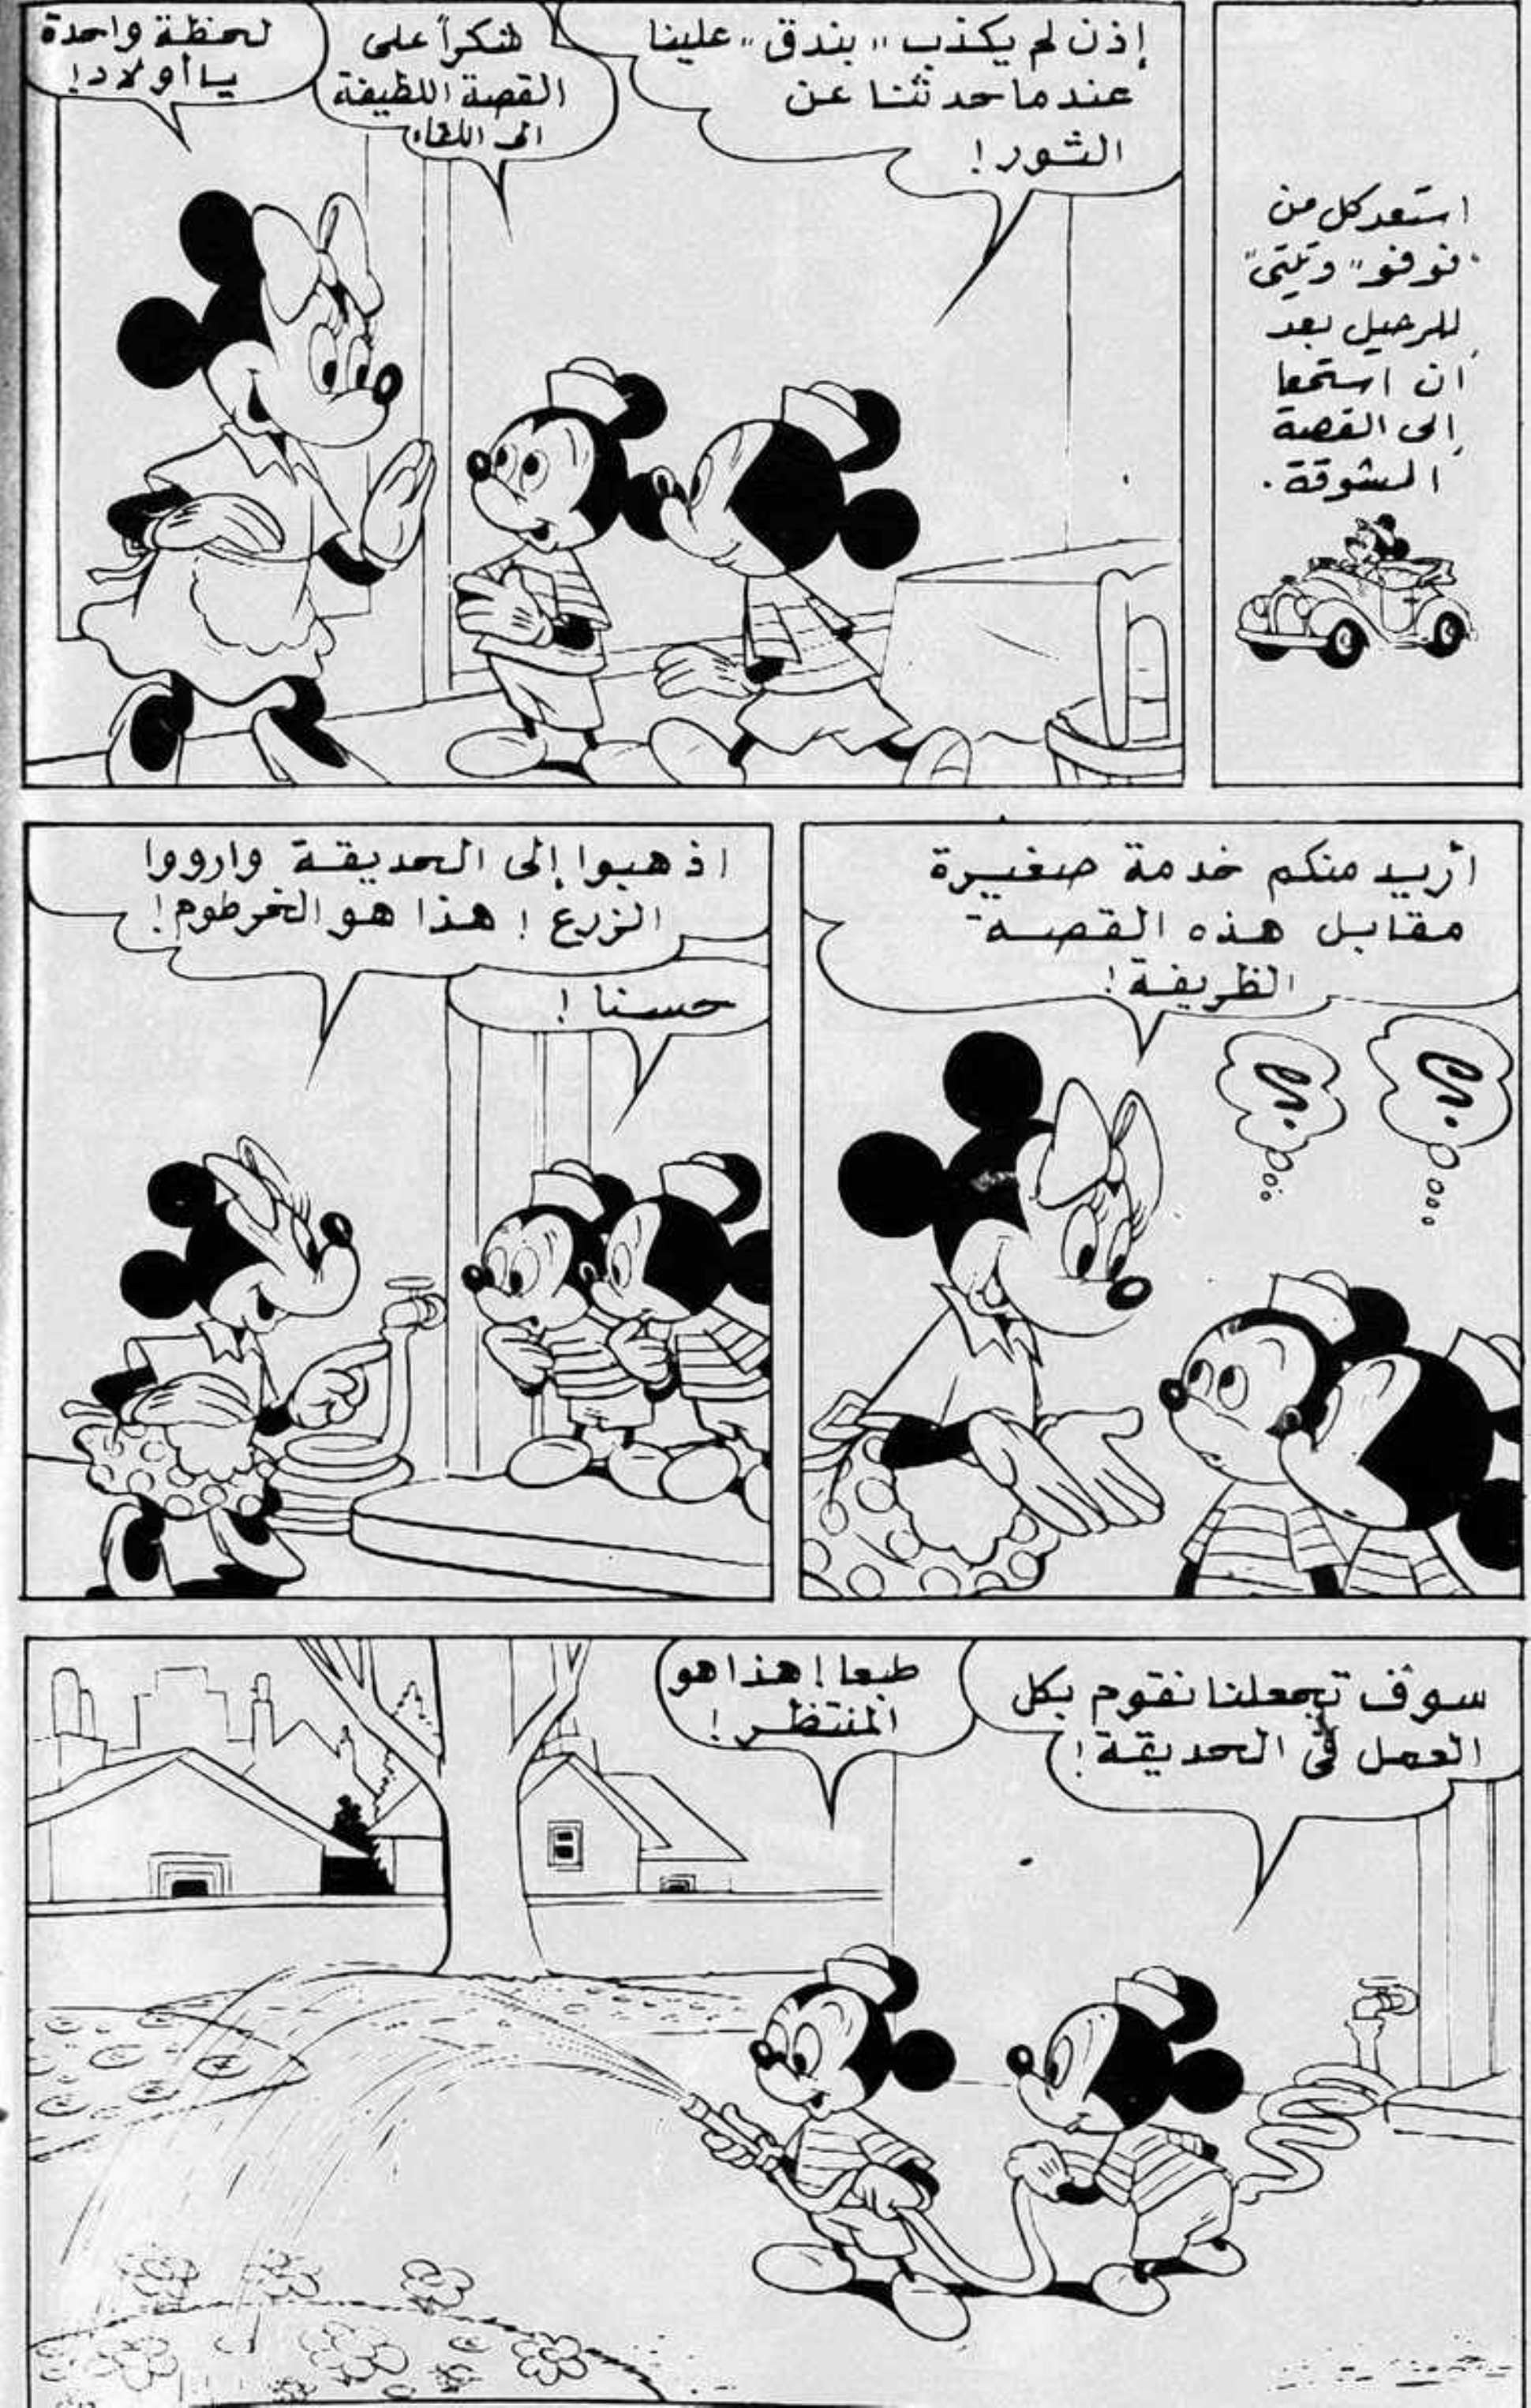 استعد كل من
"توفو" وتيتى"
للرحيل بعد
أن استمعا
إلى القصة
المشوقة.
إذن لم يكذب "بندق" علينا
عندما حدثنا عن
الثور!
شكراً على
القصة اللطيفة
الى اللقاء
لحظة واحدة
يا أولاد!
أريد منكم خدمة صغيرة
مقابل هذه القصة
الظريفة!
اذهبوا إلى الحديقة وارووا
الزرع! هذا هو الخرطوم!
حسنا!
سوف تجعلنا نقوم بكل
العمل في الحديقة!
طبعا! هذا هو
المنتظر!